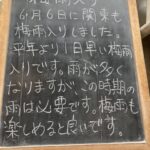 梅雨入り
6月6日に関東も
梅雨入りしました。
平年より1日早い梅雨
入りです。雨が多く
なりますが、この時期の
雨は必要です。梅雨も
楽しめると良いです。